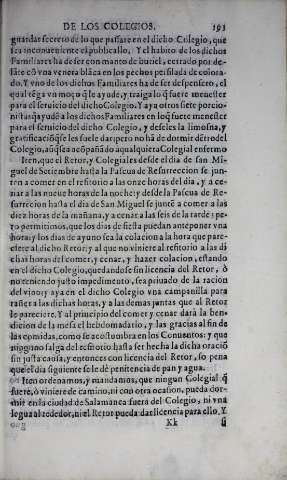 DE LOS COLEGIOS. 193
guardar secreto de lo que passare en el dicho Colegio, que
sea inconueniente el publicallo, Y el habito de los dichos
Familiares ha de ser con manto de buriel, cerrado por de-
lãte cõ vna venera blãca en los pechos perfilada de colora-
do. Y vno de los dichos Familiares ha de ser despensero, el
qual tẽga vn moço q̃ le ayude, y traiga lo q̃ fuere menester
para el seruicio del dicho Colegio. Y aya otros siete porcio-
nistas q̃ ayudẽ a los dichos Familiares en lo q̃ fuere menester
para el seruicio del dicho Colegio, y deseles la limosna, y
gratificaciõ q̃ se les suele dar: pero no hã de dormir dẽtro del
Colegio, aũq̃ sea acõpañãdo a qualquiera Colegial enfermo
Iten, que el Retor, y Colegiales desde el dia de san Mi-
guel de Setiembre hasta la Pascua de Resurreccion se jun-
ten a comer en el refitorio a las onze horas del dia, y a ce-
nar a las nueue horas de la noche: y desde la Pascua de Re-
surreccion hasta el dia de San Miguel se juntẽ a comer a las
diez horas de la mañana, y a cenar a las seis de la tarde: pe-
ro permitimos, que los dias de fiesta puedan anteponer vna
hora: y los dias de ayuno sea la colacion a la hora que pare-
ciere al dicho Retor: y al que no viniere al refitorio a las di
chas horas del comer, y cenar, y hazer colacion, estando
en el dicho Colegio, quedandose sin licencia del Retor, ò
no teniendo justo impedimento, sea priuado de la racion
del vino: y aya en el dicho Colegio vna campanilla para
tañer a las dichas horas, y a las demas juntas que al Retor
le pareciere. Y al principio del comer y cenar dará la ben-
dicion de la mesa el hebdomadario, y las gracias al fin de
las comidas, como se acostumbra en los Conuentos: y que
ninguno salga del refitorio hasta ser hecha la dicha oraciõ
sin justa causa, y entonces con licencia del Retor, so pena
que el dia siguiente se le dè penitencia de pan y agua.
Iten ordenamos, y mandamos, que ningun Colegial q̃
fuere, ò viniere de camino, ni con otra ocasion, pueda dor-
mir en la ciudad de Salamanca fuera del Colegio, ni vna
legua alrededor, ni el Retor pueda dar licencia para ello. Y
Kk si